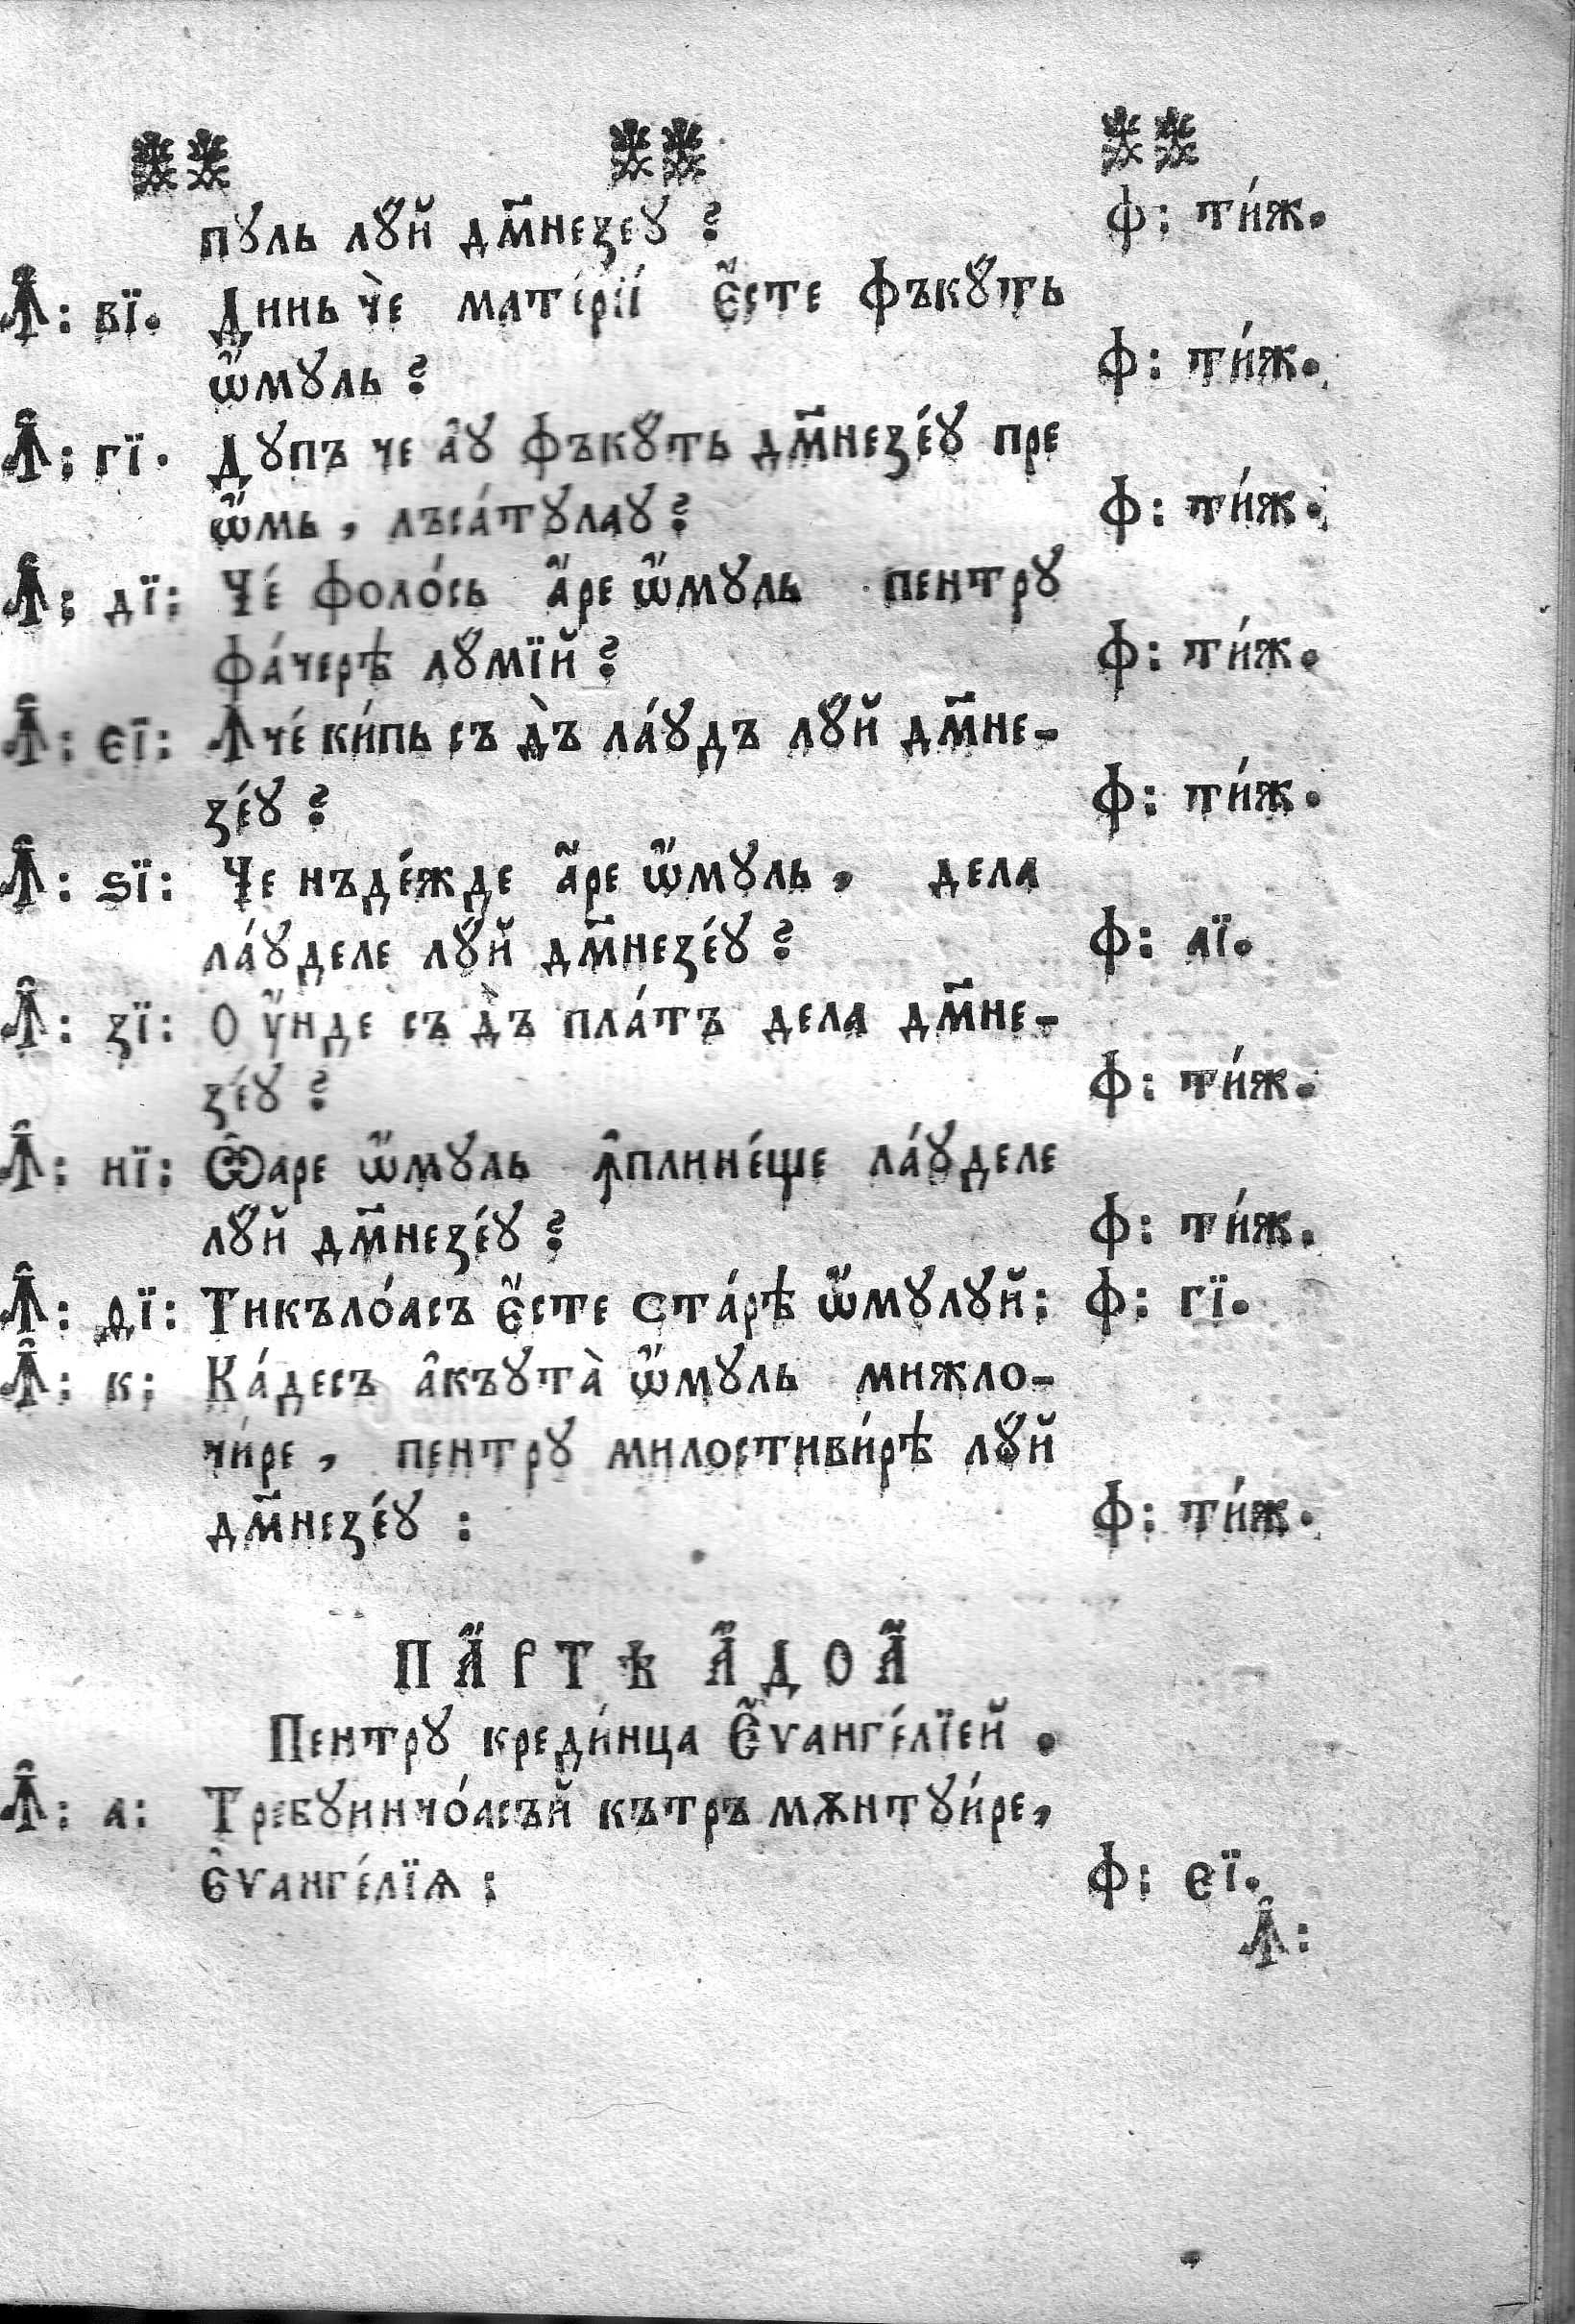 пꙋль лꙋ́й дм҃незеꙋ ? ф: ти́ж.
Ꙟ: ві҃. Динь чѐ мате́рїи є҆́сте фъкꙋ́ть
ѡ҆́мꙋль ? ф: ти́ж.
Ꙟ: гі҃. Дꙋпъ че а҆ꙋ фъкꙋ́ть дм҃незе́ꙋ пре
ѡ҆́мь , лъса́тꙋлаꙋ ? ф: ти́ж.
Ꙟ: ді҃: Че́ фоло́сь а҆́ре ѡ҆́мꙋль пентрꙋ
фа́черѣ лꙋ́мїй ? ф: ти́ж.
Ꙟ: єі҃: Ꙟче́ ки́пь съ дъ̀ ла́ꙋдъ лꙋ́й дм҃не-
зе́ꙋ ? ф: ти́ж.
Ꙟ: ѕі҃: Че нъде́жде а҆́ре ѡ҆́мꙋль , дела
ла́ꙋделе лꙋ́й дм҃незе́ꙋ ? ф: аі҃.
Ꙟ: зі҃: Оу҆́нде съ дъ̀ пла́тъ дела дм҃не-
зе́ꙋ ? ф: ти́ж.
Ꙟ: ні҃: Ѽаре ѡ҆́мꙋль ꙟ҆плине́ще ла́ꙋделе
лꙋ́й дм҃незе́ꙋ ? ф: ти́ж.
Ꙟ: ді҃: Тикъло́асъ є҆́сте ста́рѣ ѡ҆́мꙋлꙋй ; ф: гі҃.
Ꙟ: к; Ка́десъ а҆къꙋта̀ ѡ҆́мꙋль мижло-
чи́ре , пентрꙋ милостиви́рѣ лꙋ́й
дм҃незе́ꙋ : ф: ти́ж.
ПА҆́РТѢ А҆́ДОА҆́
Пентрꙋ креди́нца Є҆ѵанге́лїей .
Ꙟ: а: Требꙋинчо́асъй кътръ мѫнтꙋи́ре ,
Є҆ѵанге́лїѧ : ф: єі҃.
Ꙟ: